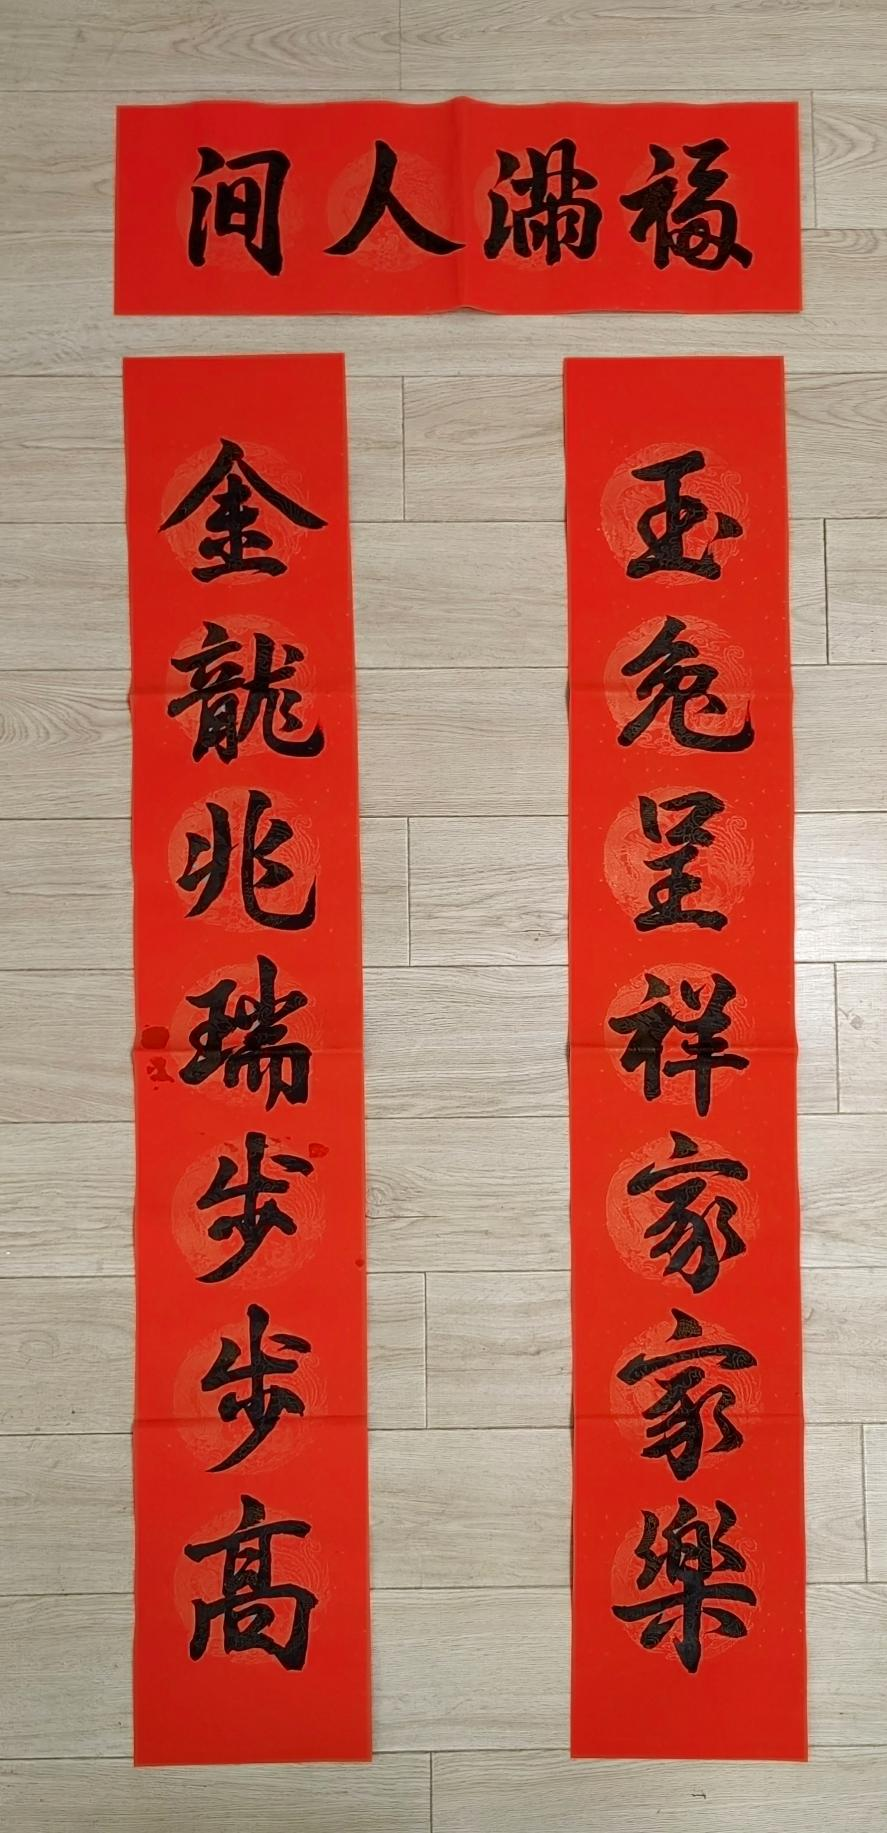 福滿人间
玉兔呈祥家家樂
金龍兆瑞步步高